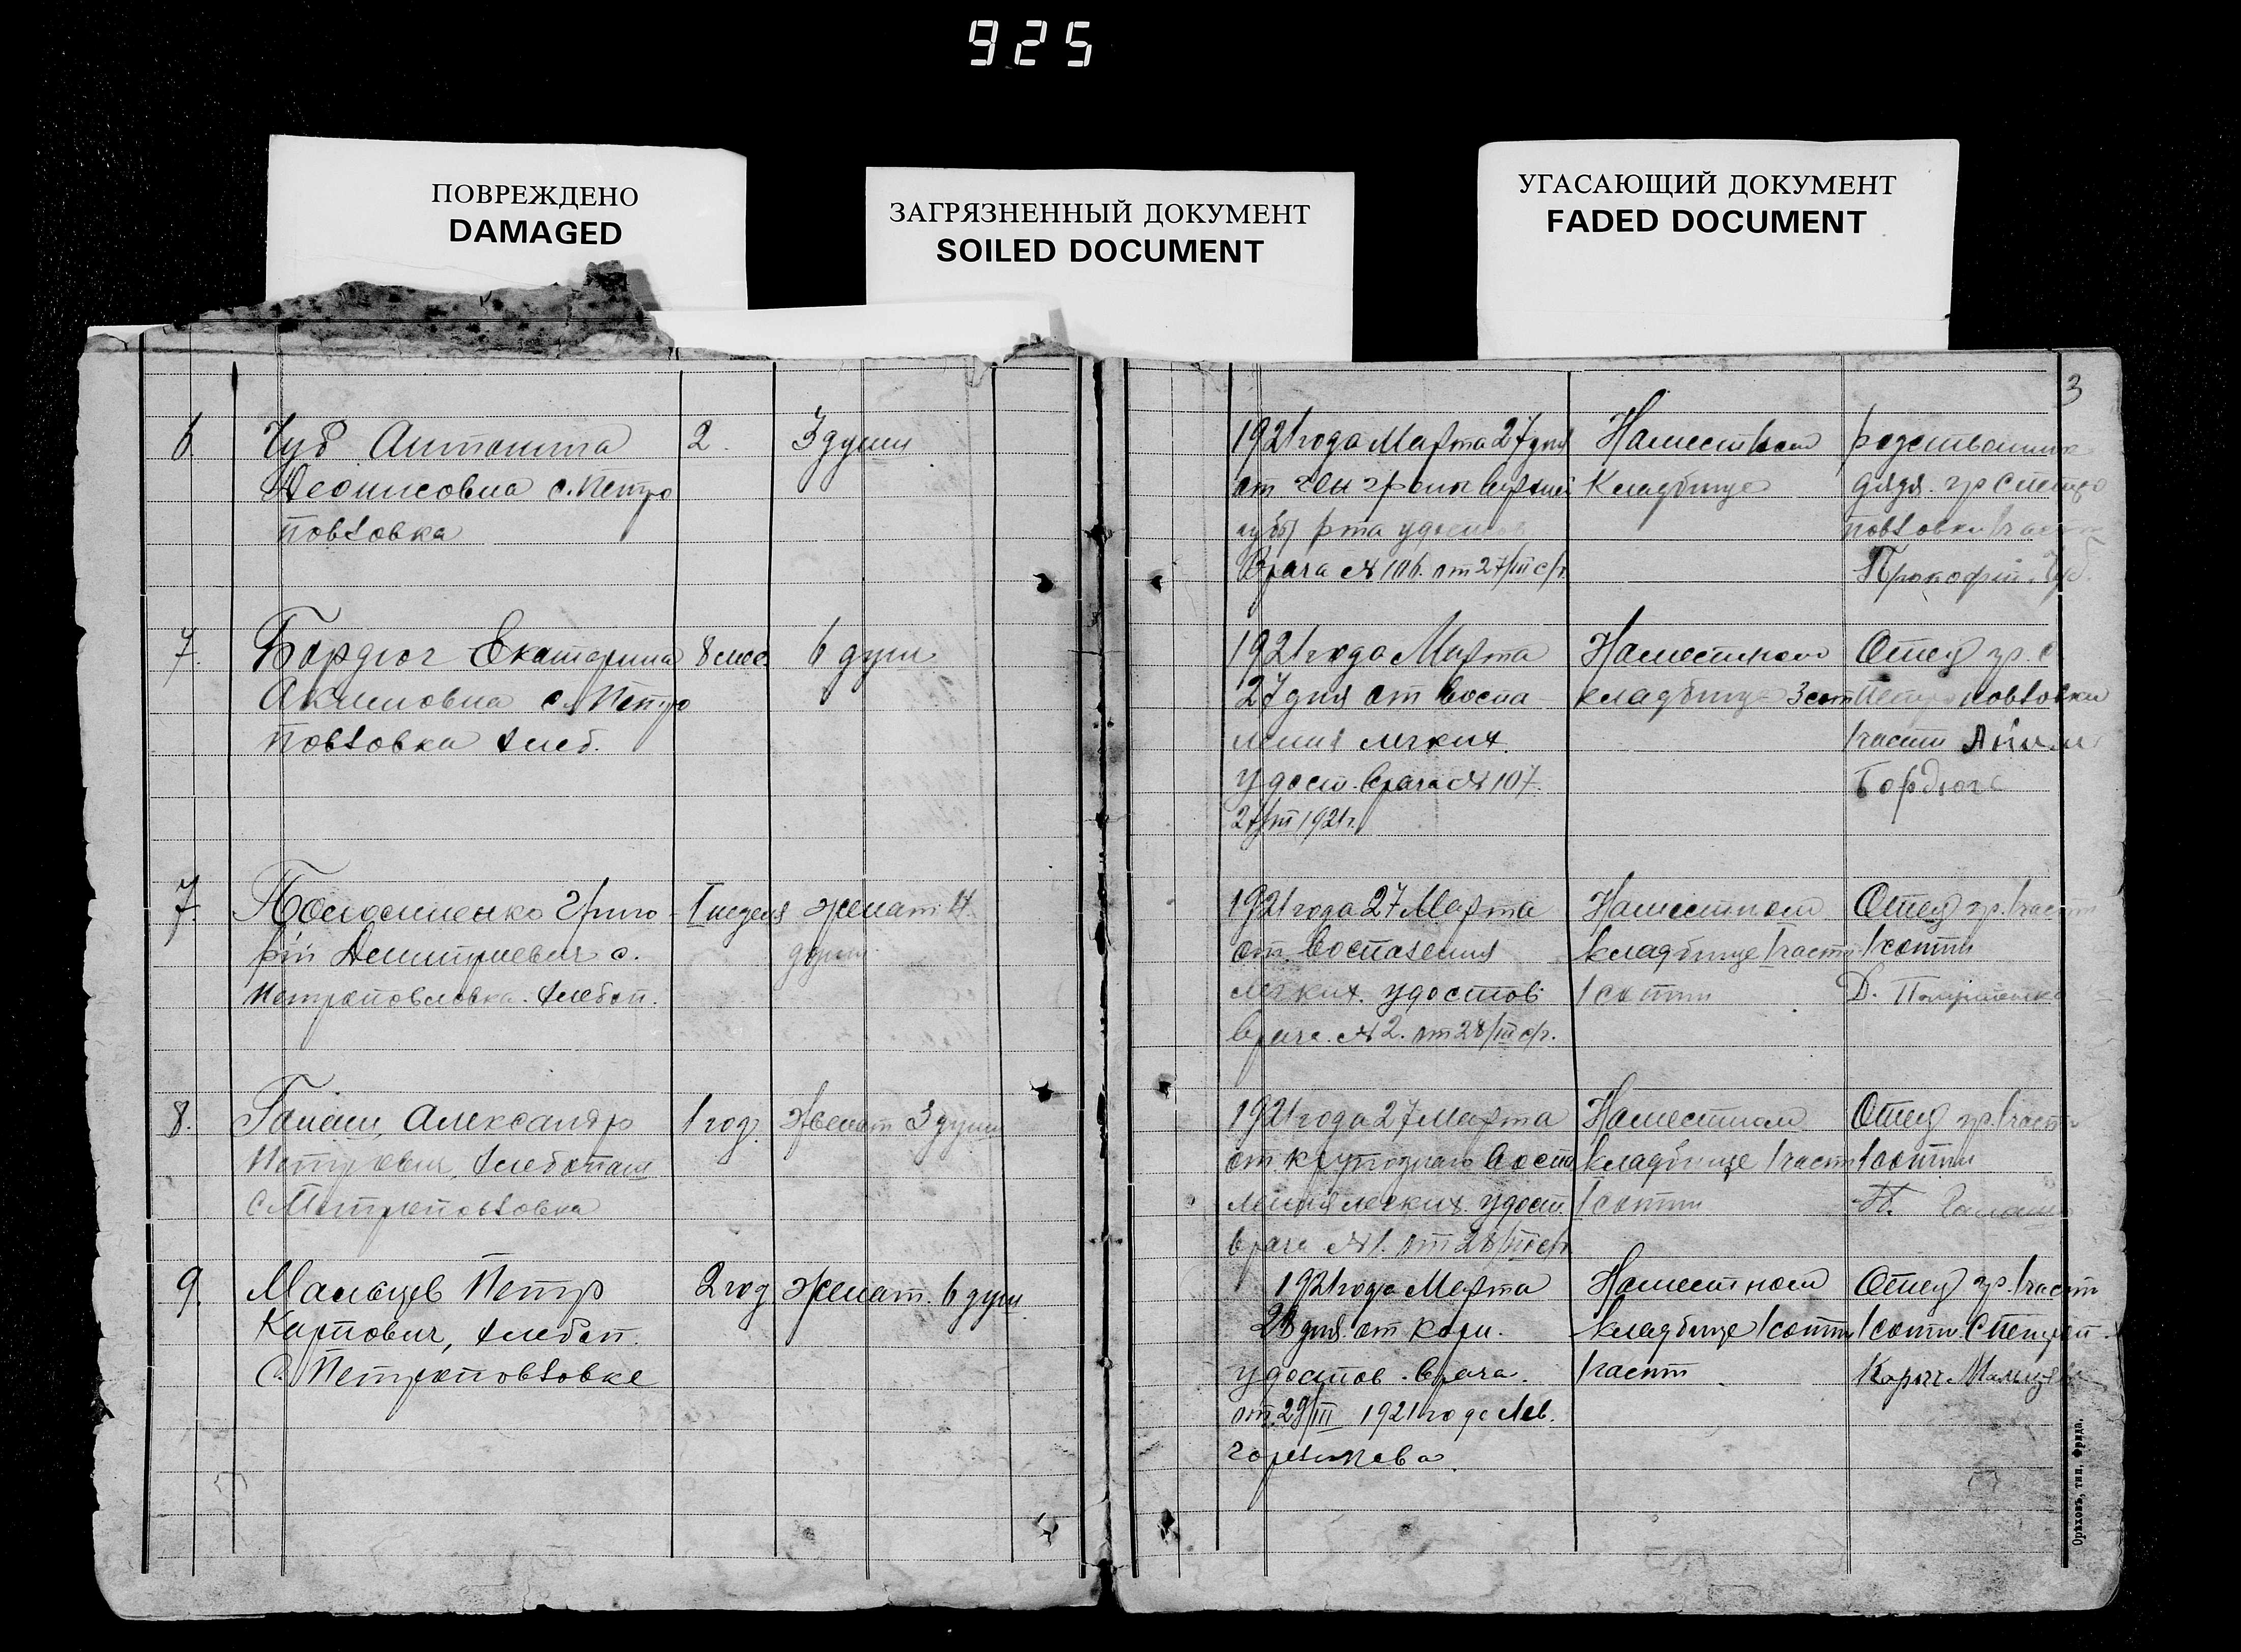 925
ПОВРЕЖДЕНО
DAMAGED
ЗАГРЯЗНЕННЫЙ ДОКУМЕНТ
SOILED DOCUMENT
УГАСАЮЩИЙ ДОКУМЕНТ
FADED DOCUMENT
3
6 Чуб Антонина 2. 3 души
Деонисовна с. Петро
повловка
1921 года Марта 27 дня На местном
от Кладбище дядя. гр с Петро
рта повловки 1 части
Врача № 106. от 27/III с/г. Прокофий Чуб.
7. Бордюг Екатерина 8 мес. 6 душ
Акимовна с. Петро
повловка хлеб.
1921 года Марта На местном Отец гр. с
27 дня от воспа кладбище 3 сот Петроповловки
ления легких. 1 части Аким
Удост. врача № 107. Бордюг
27/III 1921 г.
7. Григо 1 неделя женат 4
рий Димитриевич с. души
Петроповловка. хлебоп.
1921 года 27 Марта На местном Отец гр. 1 части
от воспаления кладбище 1 части 1 сотни
легких. удостов 1 сотни Д.
врача. № 2. от 28/III с/г.
8. Галаш Александр 1 год. Женат 3 души
Петрович, хлебопаш
с Петроповловка
1921 года 27 Марта На местном Отец гр. 1 части
от крупозного воспа кладбище 1 части 1 сотни
ления легких. удост. 1 сотни П. Галаш
врача № 1. от 28/III с/г
9. Мальцев Петр 2 год Женат. 6 душ
Карпович, хлебоп.
с. Петроповловке
1921 года Марта На местном Отец гр. 1 части
28 дня от кори. кладбище 1 сотни 1 сотни с Петроп
удостов. врача. 1 части Карп. Мальцев
от 29/III 1921 года
Орѣховъ, тип. Фрида,